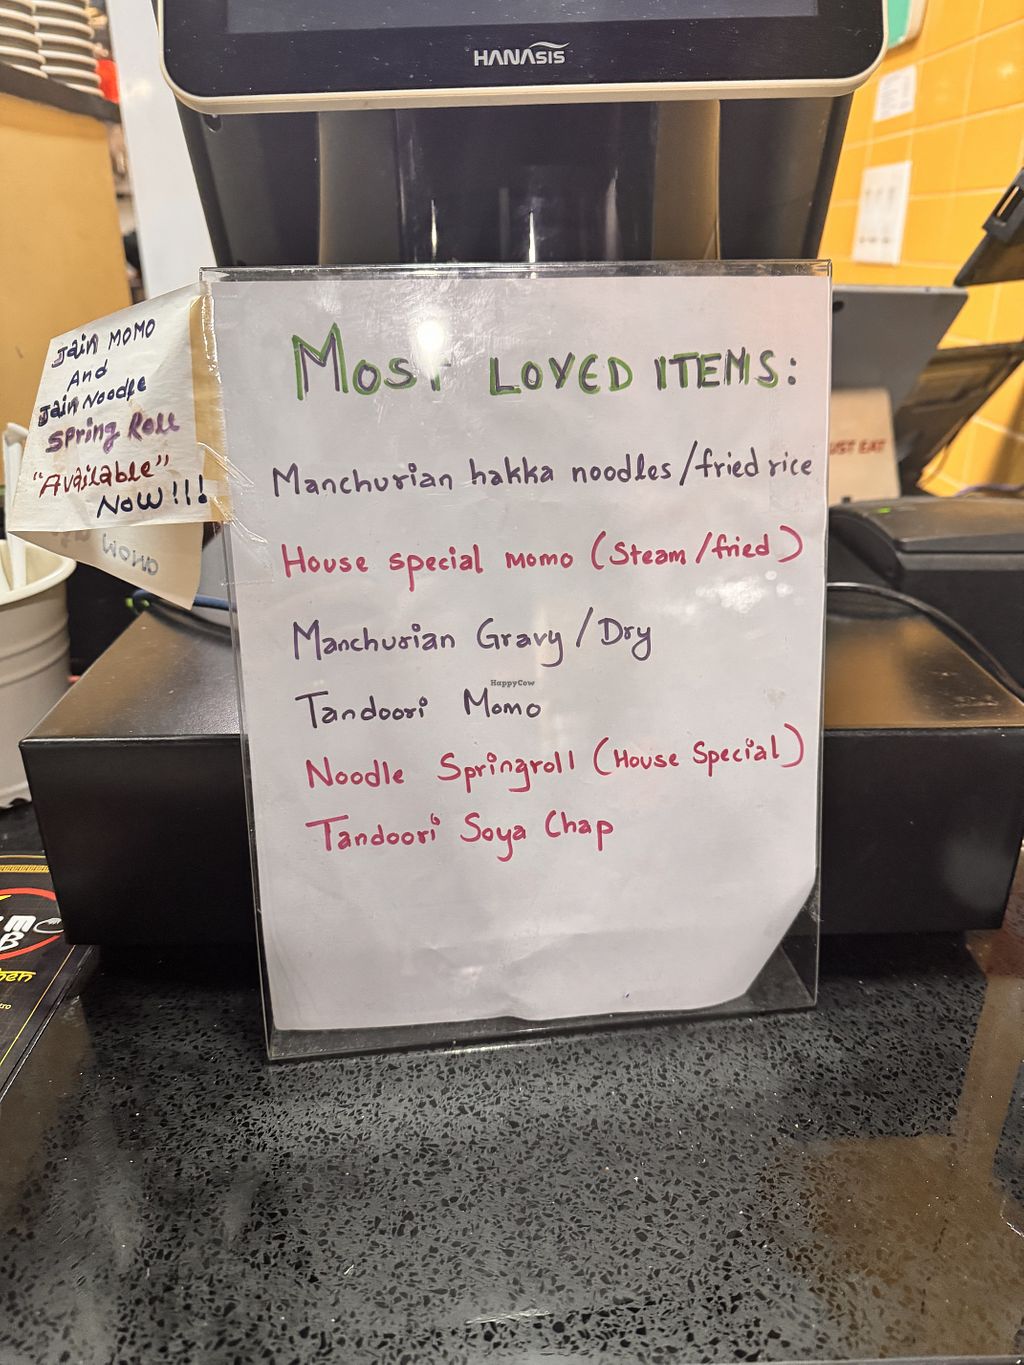 HANASIS
Jain MOMO
And
Jain Noodle
Spring Roll
"Available"
NOW!!!
MOMO
MOST LOVED ITEMS:
Manchurian hakka noodles/fried rice
House special momo (Steam/fried)
Manchurian Gravy/Dry
HappyCow
Tandoori Momo
Noodle Springroll (House Special)
Tandoori Soya Chap
UST EAT